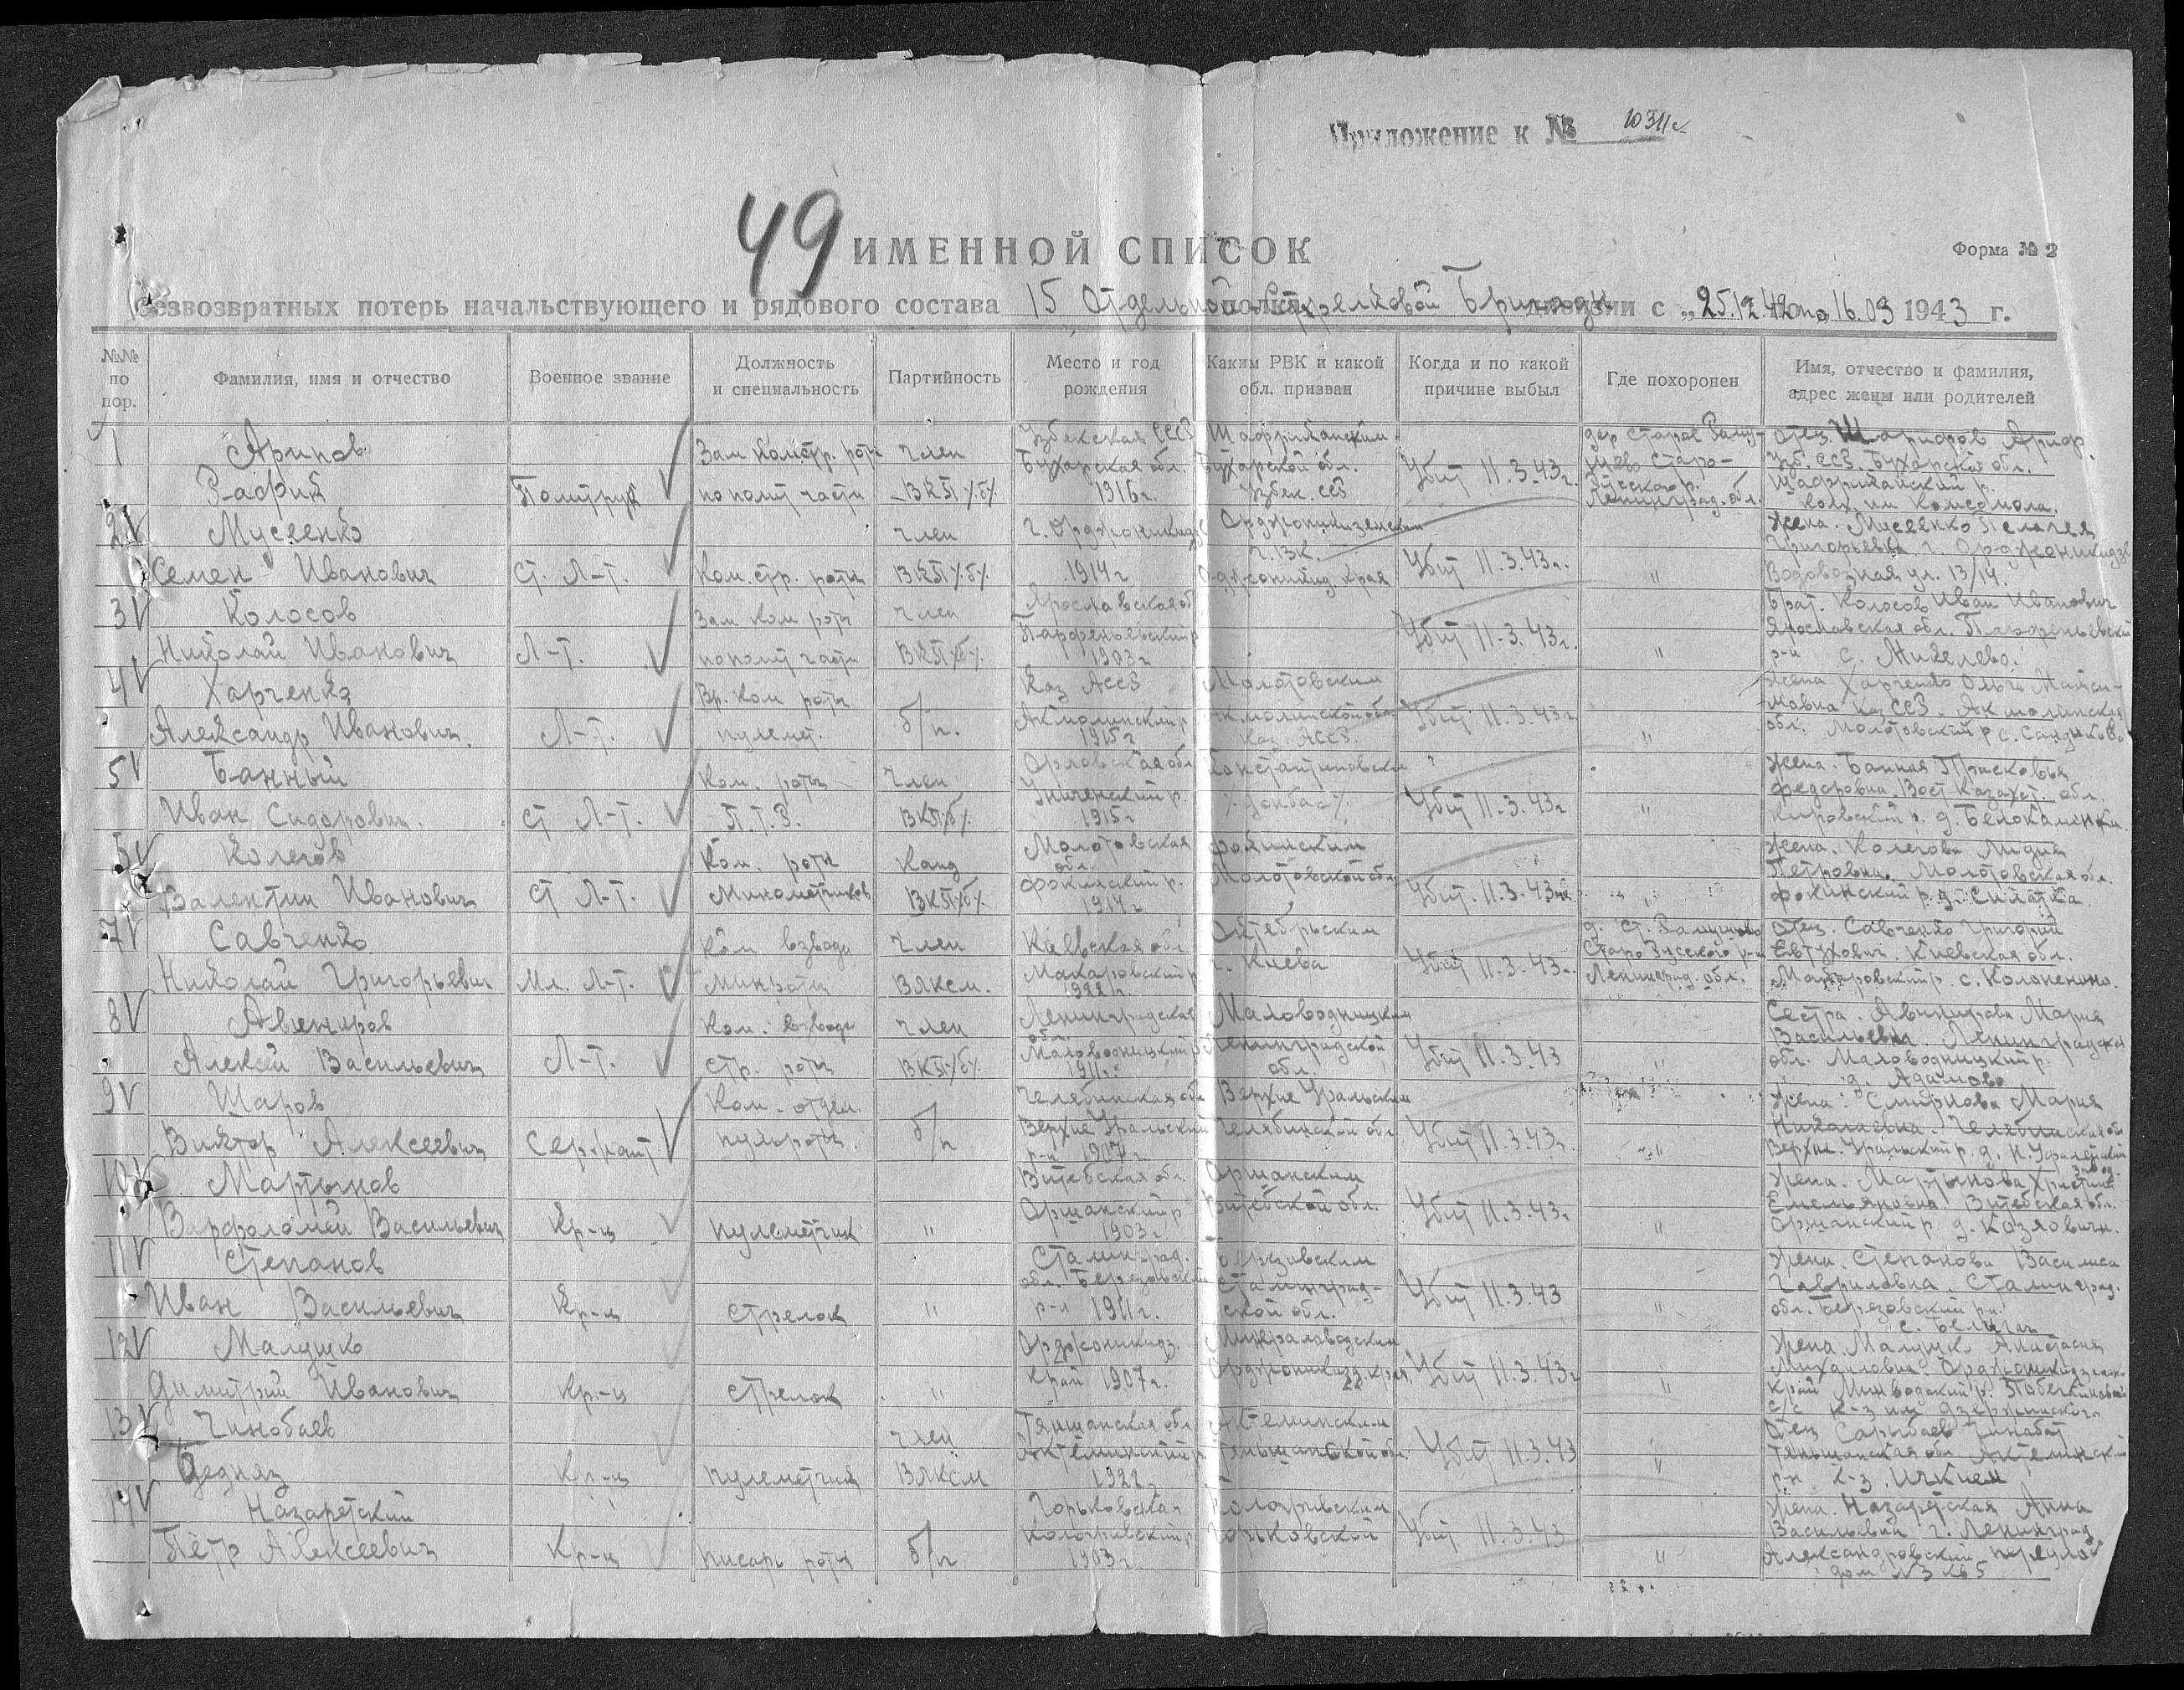 Приложение к № 1031с
49 ИМЕННОЙ СПИСОК
Форма № 2
безвозвратных потерь начальствующего и рядового состава 15 Отдельной Стрелковой Бригады с „25.12.42 по 16.03 1943 г.
№№ по пор.
Фамилия, имя и отчество
Военное звание
Должность и специальность
Партийность
Место и год рождения
Каким РВК и какой обл. призван
Когда и по какой причине выбыл
Где похоронен
Имя, отчество и фамилия, адрес жены или родителей
1 Арипов Рафик
Политрук
Зам Ком стр. роты по полит части
член ВКП/б/
Узбекская ССР Бухарская обл. 1916 г.
Шафриканским Бухарской обл. Узбек. ССР
Убит 11.3.43 г.
дер Старое Рамушево Старо-Русского р. Ленинград. обл.
отец Шарифов Ариф Узб. ССР. Бухарская обл. Шафриканский р. колх им Комсомола.
2 Мусеенко Семен Иванович
Ст. Л-т.
Ком. стр. роты
член ВКП/б/
г. Орджоникидзе 1914 г
Орджоникидзевским г.ВК. Орджоникид края
Убит 11.3.43 г.
"
Жена. Мусеенко Пелагея Григорьевна г. Орджоникидзе Водовозная ул. 13/14.
3 Колосов Николай Иванович
Л-т.
Зам ком роты по полит части
член ВКП/б/
Ярославская об Парфеньевский р 1903 г
Убит 11.3.43 г.
"
Брат. Колосов Иван Иванович Ярославская обл. Парфеньевский р-н с. Михелево.
4 Харченко Александр Иванович.
Л-т.
Вр. Ком роты пулемет.
б/п.
Каз АССР Акмолинский р 1915 г
Молотовским Акмолинской обл Каз. АССР.
Убит 11.3.43 г.
"
Жена Харченко Ольга Каз ССР. Акмолинская обл. Молотовский р с.
5 Банный Иван Сидорович.
Ст Л-т.
Ком. роты П.Т.Р.
член ВКП/б/
Орловская обл р. 1915 г
Константиновским /Донбас/
Убит 11.3.43 г
"
Жена. Банная Прасковья Федоровна. Вост Казахст. обл. Кировский р. д. Белокаменка.
6 Колегов Валентин Иванович
Ст Л-т.
Ком. роты Минометчиков
Канд ВКП/б/
Молотовская обл. Фокинский р. 1914 г
Фокинским Молотовской обл
Убит. 11.3.43 г.
"
Жена. Колегова Лидия Петровна. Молотовская обл. Фокинский р. д.
7 Савченко Николай Григорьевич
Мл. Л-т.
Ком взвода Минроты
член ВЛКСМ.
Киевская обл Макаровский р 1922 г.
Октебрьским г. Киева
Убит 11.3.43 г.
д. Ст. Рамушево Старо Русского р-н Ленинград. обл.
отец. Савченко Григорий Евтухович. Киевская обл. Макаровский р. с. Колоненино.
8 Авениров Алексей Васильевич
Л-т.
Ком. взвода стр. роты
член ВКП/б/
Ленинградская обл. Маловодницкий р 1911 г.
Маловодницким Ленинградской обл.
Убит 11.3.43
"
Сестра. Авинирова Мария Васильевн. Ленинградская обл. Маловодницкий р.
9 Шаров Виктор Алексеевич
Сержант
Ком. отдел. пульроты.
б/п
Челябинская обл Верхне Уральский р-н 1907 г
Верхне Уральским Челябинской обл
Убит 11.3.43 г.
"
Жена. Смирнова Мария Николаевна. Челябинская обл Верхн. Уральский р. д.
10 Мартынов Варфоломей Васильевич
Кр-ц
пулеметчик
"
Витебская обл. Оршанский р 1903 г
Оршанским Витебской обл.
Убит 11.3.43 г
"
Жена. Мартынова Христина Емельяновна. Витебская обл. Оршанский р. д. Козловичи.
11 Степанов Иван Васильевич
Кр-ц
стрелок
"
Сталинград. обл. Березовский р-н 1911 г.
Березовским Сталинградской обл.
Убит 11.3.43
"
Жена. Степанова Василиса Гавриловна. Сталинград. обл. Березовский рн.
12 Малушко Димитрий Иванович
Кр-ц
стрелок
"
Орджоникидз. край 1907 г.
Минераловодским Орджоникидз. края.
Убит 11.3.43 г
"
Жена. Малушко Анастасия Михаиловна. Орджоникидзевск. край Минводский р. с/с к-з им Дзержинского
13 Чинобаев
Кр-ц
пулеметчик
член ВЛКСМ
Тяншанская обл Актелинский р. 1922 г
Актелинским Тяньшанской обл.
Убит 11.3.43
"
Отец Сарыбаев Чинабай Тяньшанская обл Актелинский р-н к-з
14 Назаретский Пётр Алексеевич
Кр-ц
писарь роты
б/п
Горьковская Кологривский р 1903 г
Кологривским Горьковской
Убит 11.3.43
"
Жена. Назаретская Анна Васильевна г. Ленинград Александровский переулок дом №3 кв 5